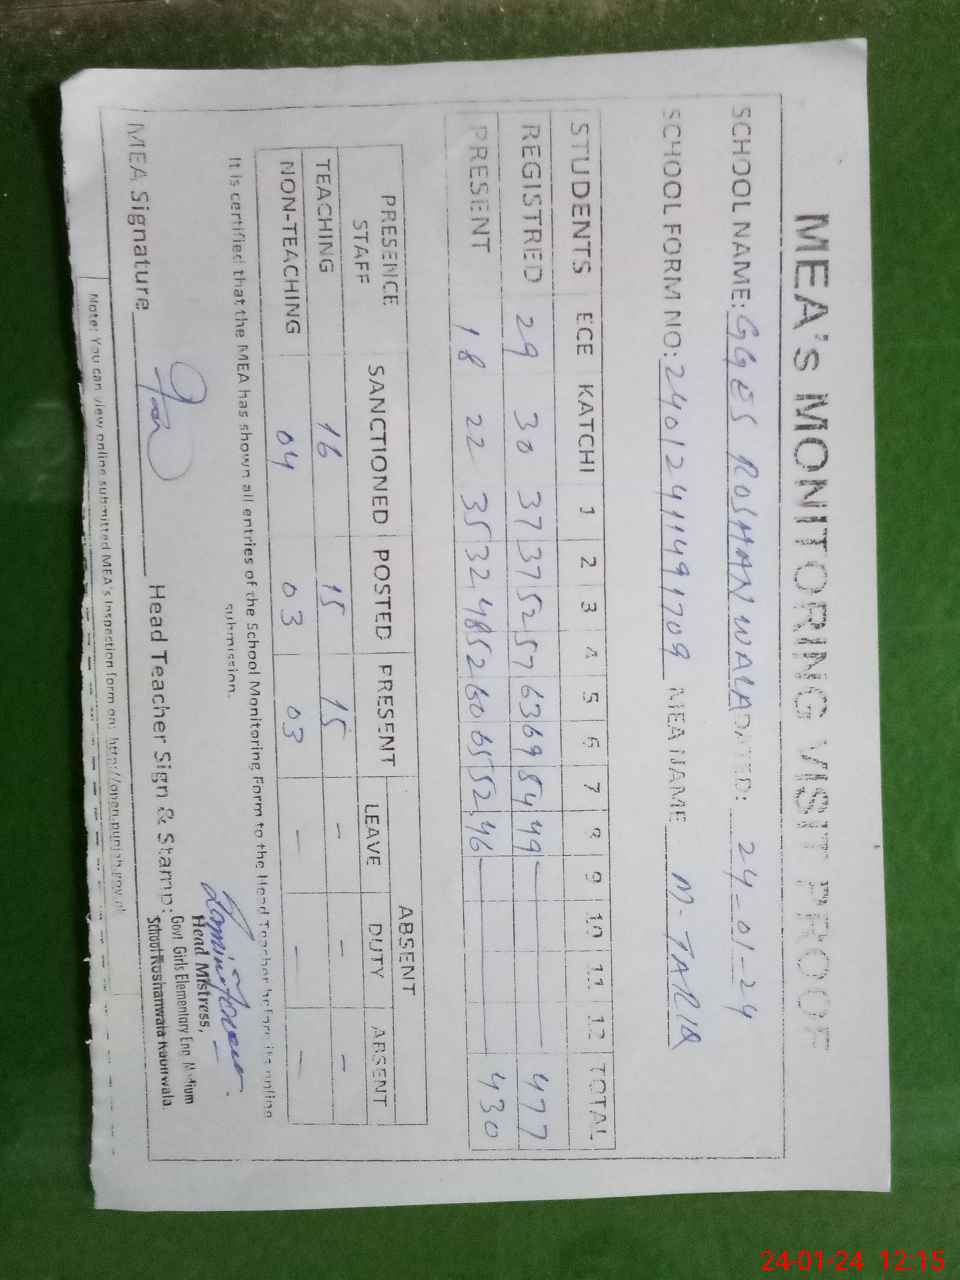 MEA's MONITORING VISIT PROOF
SCHOOL NAME: GGES ROSHAN WALA DATED: 24-01-24
SCHOOL FORM NO: 24012411491709 MEA NAME M-TARIQ
STUDENTS ECE KATCHI 1 2 3 4 5 6 7 8 9 10 11 12 TOTAL
REGISTRED 29 30 37 37 52 57 63 69 54 49 — 477
PRESENT 18 22 35 32 48 52 60 65 52 46 — 430
PRESENCE STAFF SANCTIONED POSTED PRESENT ABSENT
LEAVE DUTY ABSENT
TEACHING 16 15 15 - - -
NON-TEACHING 04 03 03 - - -
It is certified that the MEA has shown all entries of the School Monitoring Form to the Head Teacher before its online
submission.
MEA Signature Head Teacher Sign & Stamp:
Head Mistress,
Govt. Girls Elementary Eng. Medium
School Roshanwala
Note: You can view online submitted MEA's Inspection form on: http://open.punjab.gov.pk
24-01-24 12:15